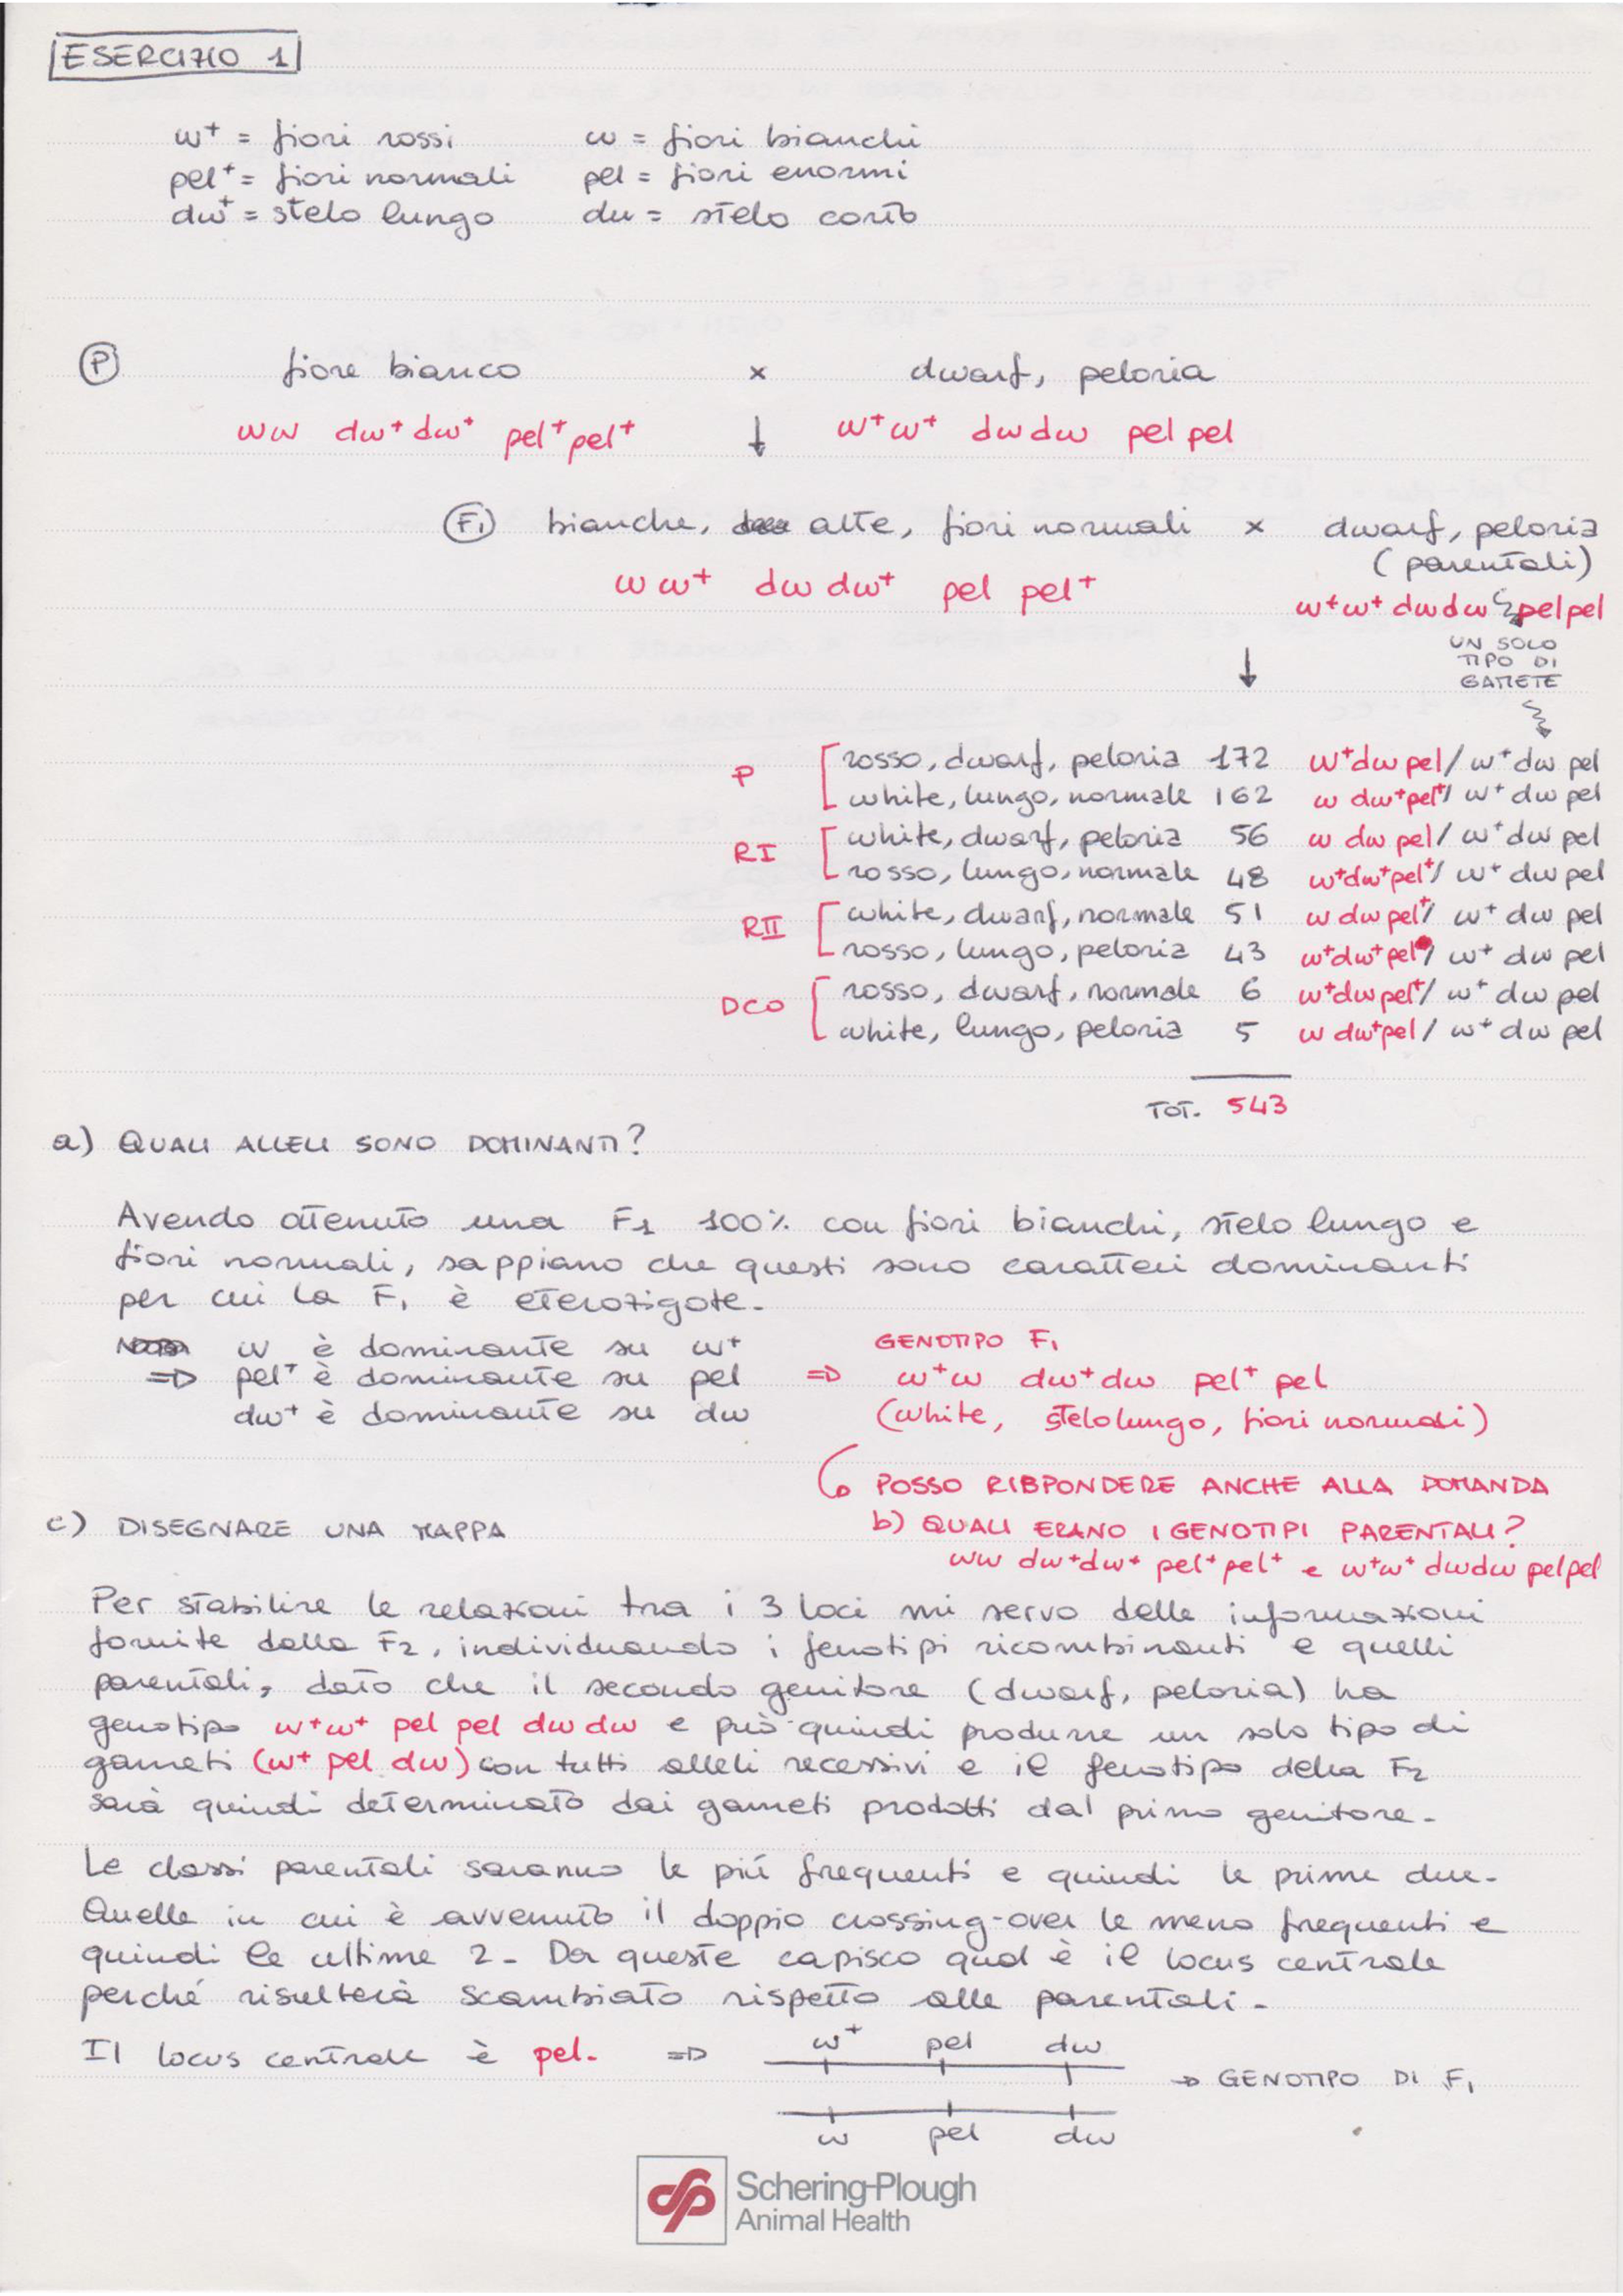 ESERCIZIO 1
w⁺ = fiori rossi w = fiori bianchi
pel⁺ = fiori normali pel = fiori enormi
dw⁺ = stelo lungo dw = stelo corto
P fiore bianco x dwarf, peloria
ww dw⁺dw⁺ pel⁺pel⁺ ↓ w⁺w⁺ dwdw pel pel
F₁ bianche, alte, fiori normali x dwarf, peloria
(parentali)
w w⁺ dw dw⁺ pel pel⁺ w⁺w⁺ dwdw pelpel
UN SOLO
TIPO DI
GAMETE
↓
P rosso, dwarf, peloria 172 w⁺dw pel/ w⁺ dw pel
white, lungo, normale 162 w dw⁺pel⁺/ w⁺ dw pel
RI white, dwarf, peloria 56 w dw pel/ w⁺ dw pel
rosso, lungo, normale 48 w⁺dw⁺pel⁺/ w⁺ dw pel
RII white, dwarf, normale 51 w dw pel⁺/ w⁺ dw pel
rosso, lungo, peloria 43 w⁺dw⁺pel/ w⁺ dw pel
DCO rosso, dwarf, normale 6 w⁺dw pel⁺/ w⁺ dw pel
white, lungo, peloria 5 w dw⁺pel/ w⁺ dw pel
TOT. 543
a) QUALI ALLELI SONO DOMINANTI?
Avendo ottenuto una F₁ 100% con fiori bianchi, stelo lungo e
fiori normali, sappiano che questi sono caratteri dominanti
per cui la F₁ è eterozigote.
w è dominante su w⁺ GENOTIPO F₁
⇒ pel⁺ è dominante su pel ⇒ w⁺w dw⁺dw pel⁺ pel
dw⁺ è dominante su dw (white, stelo lungo, fiori normali)
POSSO RISPONDERE ANCHE ALLA DOMANDA
c) DISEGNARE UNA MAPPA b) QUALI ERANO I GENOTIPI PARENTALI?
ww dw⁺dw⁺ pel⁺pel⁺ e w⁺w⁺ dwdw pelpel
Per stabilire le relazioni tra i 3 loci mi servo delle informazioni
fornite dalla F₂, individuando i fenotipi ricombinanti e quelli
parentali, dato che il secondo genitore (dwarf, peloria) ha
genotipo w⁺w⁺ pel pel dw dw e può quindi produrre un solo tipo di
gameti (w⁺ pel dw) con tutti alleli recessivi e il fenotipo della F₂
sarà quindi determinato dai gameti prodotti dal primo genitore.
Le classi parentali saranno le più frequenti e quindi le prime due.
Quelle in cui è avvenuto il doppio crossing-over le meno frequenti e
quindi le ultime 2. Da queste capisco qual è il locus centrale
perché risulterà scambiato rispetto alle parentali.
Il locus centrale è pel. ⇒ w⁺ pel dw
→ GENOTIPO DI F₁
w pel dw
Schering-Plough
Animal Health